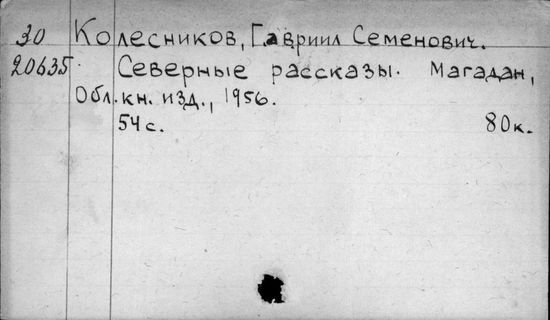 30 Колесников, Гавриил Семенович.
20635 Северные рассказы. Магадан,
Обл. кн. изд., 1956.
54 с. 80 к.